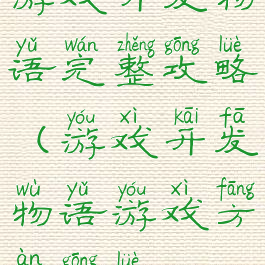 游戏开发物
yǔ wán zhěng gōng lüè
语完整攻略
yóu xì kāi fā
（游戏开发
wù yǔ yóu xì fāng
物语游戏方
àn gōng lüè